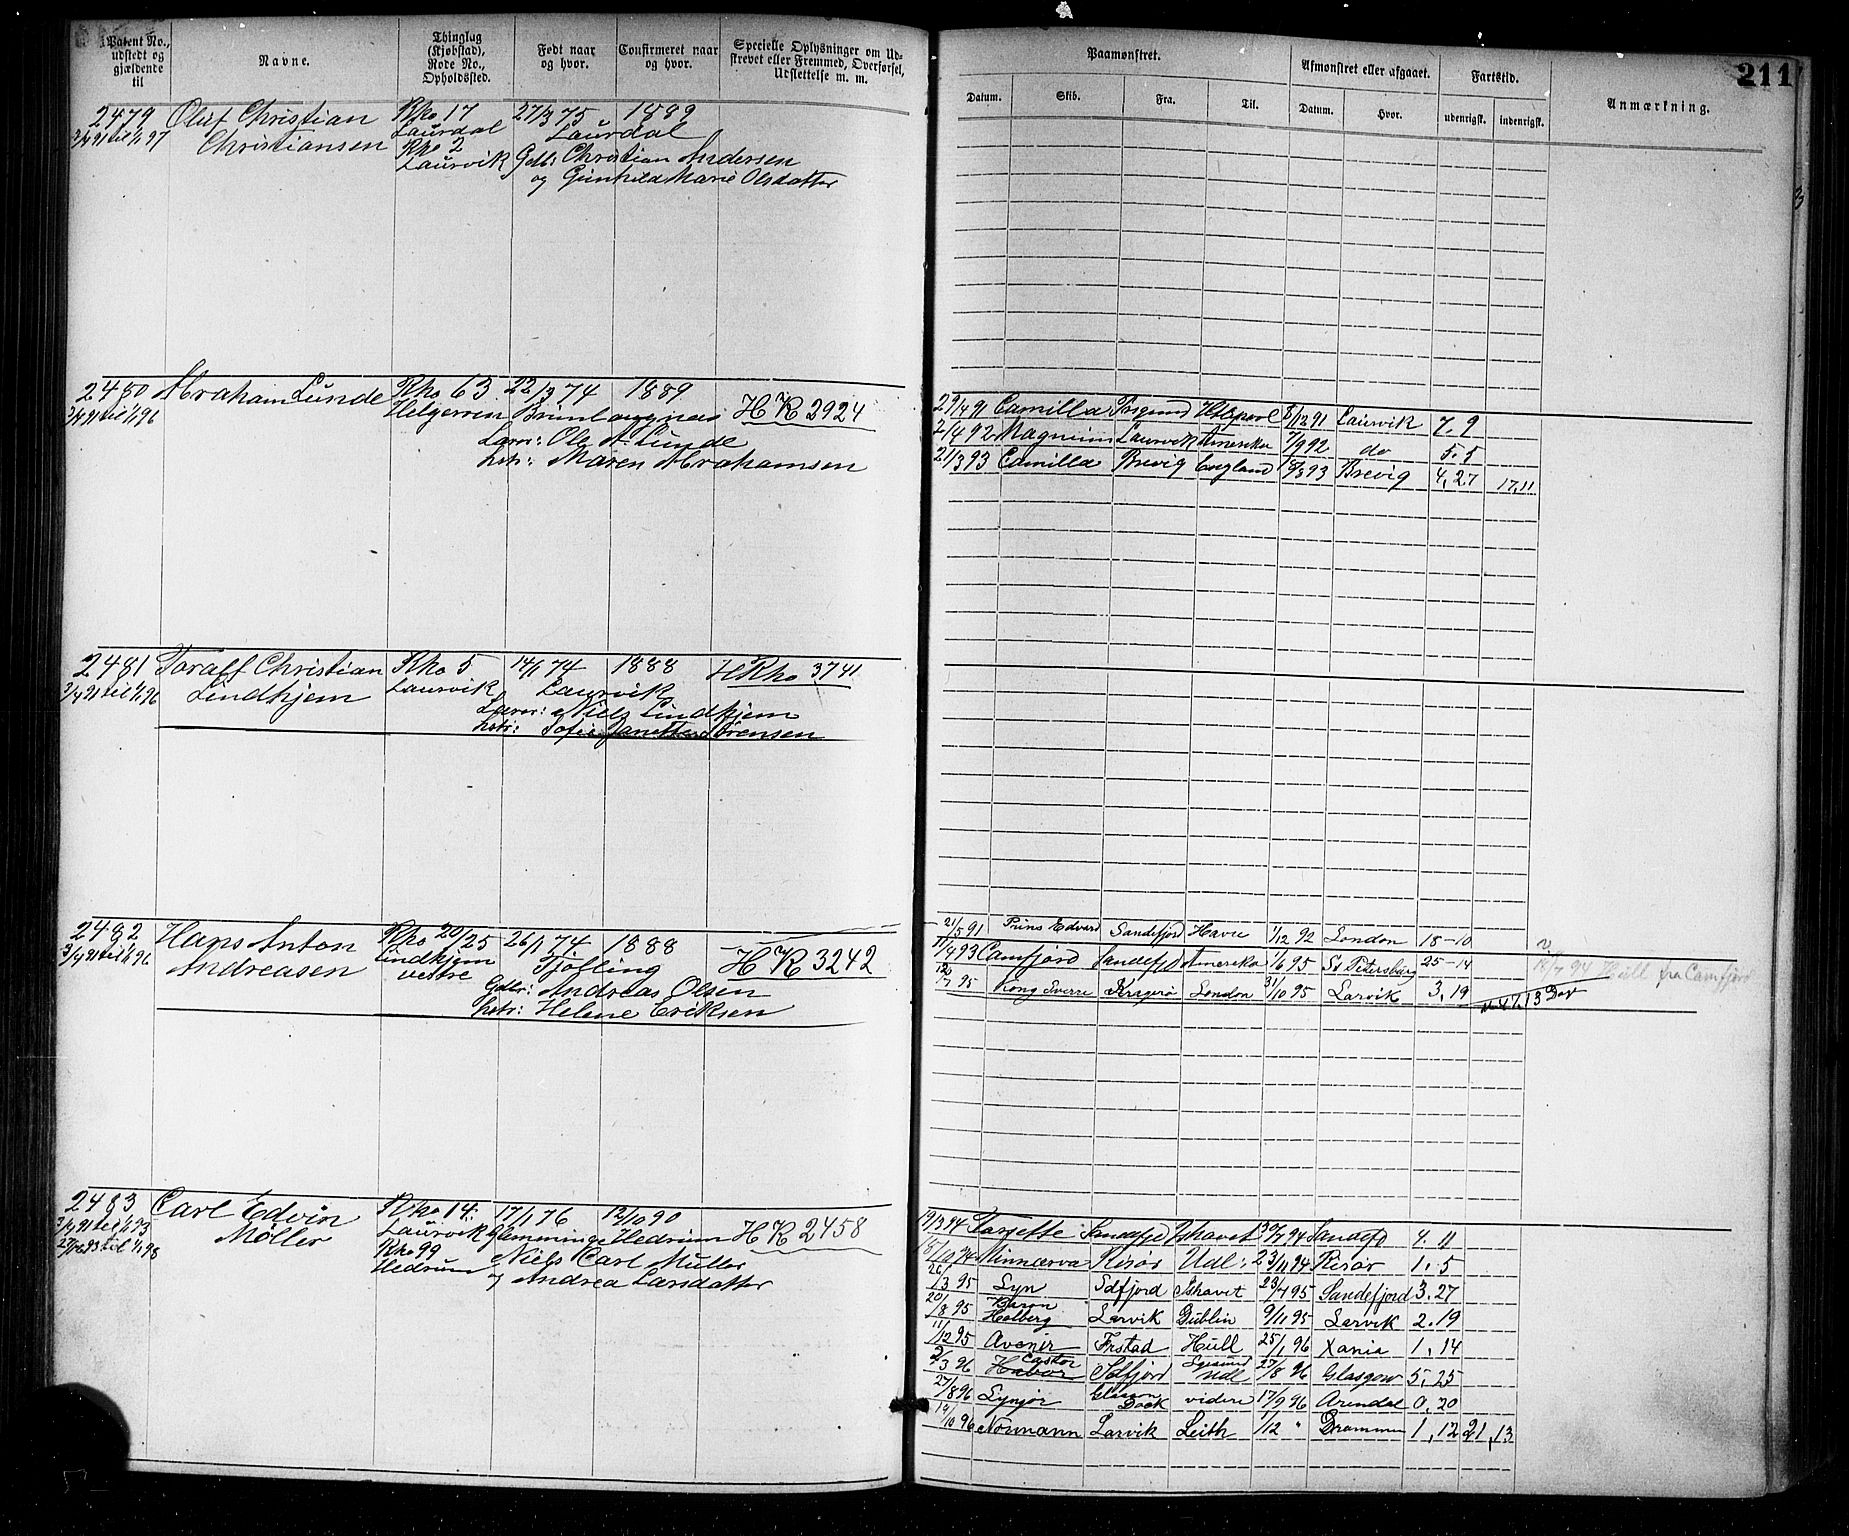 211
Patent No., udstedt og gjældende til
Navne.
Thinglag (Kjøbstad), Rode No., Opholdssted.
Født naar og hvor.
Confirmeret naar og hvor.
Specielle Oplysninger om Udskrevet eller Fremmed, Overførsel, Udslettelse m. m.
Paamønstret.
Afmønstret eller afgaaet.
Fartstid.
Anmærkning.
Datum. Skib. Fra. Til. Datum. Hvor. udenrigsk. indenrigsk.
2479 Oluf Christian Rho 17 27/3 75 1889
3/4 91 til 1/1 97 Christiansen Laurdal Laurdal
Rho 2
Laurvik Gdb: Christian Andersen
og Gunhild Marie Olsdatter
2480 Abraham Lunde Rho 63 22/3 74 1889 H R 2924
3/4 91 til 1/1 96 Helgeroen Brunlangnæs
Larer: Ole A. Lunde
hstr: Maren Abrahamsen
29/4 91 Camilla 8/12 91 Laurvik 7. 9
2/4 92 Magnum Laurvik Amerika 7/9 92 do 5. 5
21/3 93 Camilla Brevig England 18/8 93 Brevig 4, 27 17, 11
2481 Toralf Christian Rho 5 14/1 74 1888 H Rho 3741
3/4 91 til 1/1 96 Lindhjem Laurvik Laurvik
Niels Lindhjem
hstr: Sofie Janette Sörensen
2482 Hans Anton Rho 20/25 26/1 74 1888 H R 3242
3/4 91 til 1/1 96 Andreasen Lindhjem Tjölling
vestre
Gdbr: Andreas Olsen
hstr: Helene Eriksen
21/5 91 Prins Edverd Sandefjord Havre 1/12 92 London 18-10
11/4 93 Camfjord Sandefjd Amerika 1/6 95 St Petersburg 25-14 Hull fra Camfjord
12/7 95 Kong Sverre Kragerö London 31/10 95 Larvik 3, 19 47, 13
2483 Carl Edvin Rho 14. 17/1 76 12/10 90
3/4 91 til 1/1 93 Möller Laurvik Glemminge Hedrum H R 2458
Rho 99 Niels Carl Müller
Hedrum og Andrea Larsdatter
19/3 94 Sandefjd Ishavet 30/7 94 Sandefd 4. 11
18/10 94 Minnærva Risör Udl: 23/11 94 Risör 1. 5
26/3 95 Lyn Sdfjord Ishavet 23/7 95 Sandefjord 3. 27
20/8 95 Baron Holberg Larvik Dublin 9/11 95 Larvik 2. 19
11/12 95 Avenir Frstad Hull 25/1 96 Xania 1, 14
2/3 96 Castor Sdfjord Udl 27/8 96 Glasgow 5, 25
27/8 96 Lyngör Dock videre 17/9 96 Arendal 0, 20
14/10 96 Normann Larvik Leith 1/12 " Drammen 1, 12 21, 13